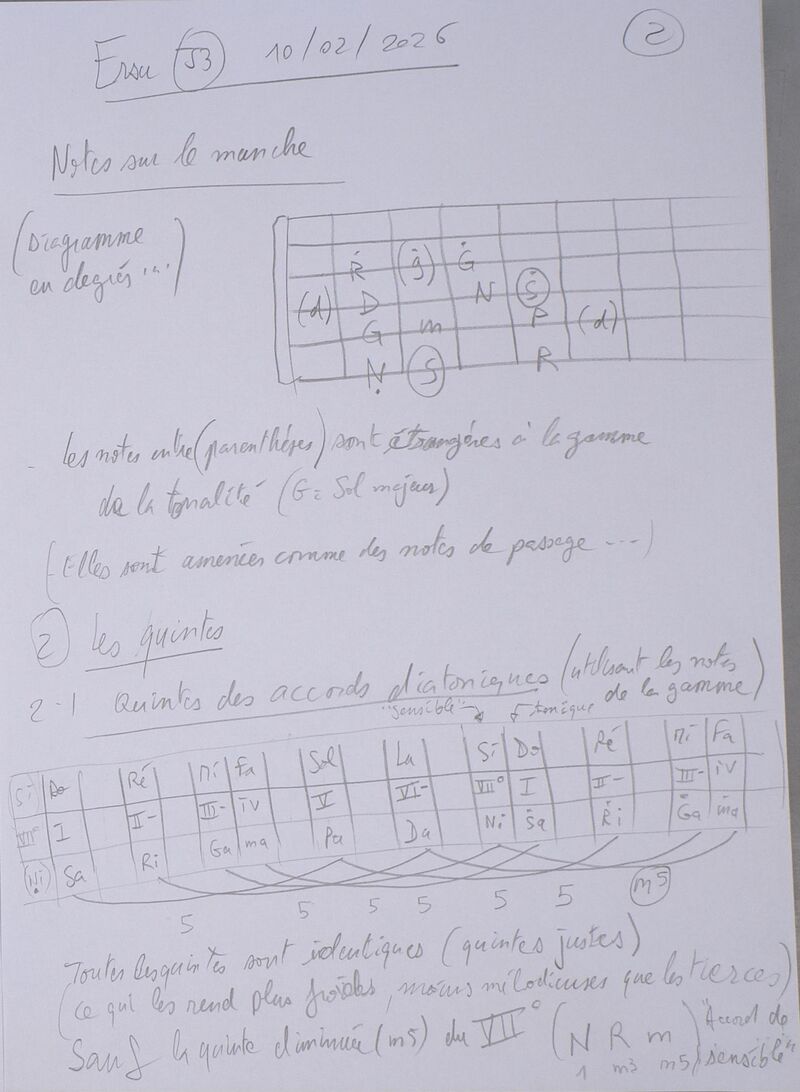 Ersu J3 10/02/2026
2
Notes sur le manche
(Diagramme
en degrés ...)
Ṙ (ġ) Ġ
(d) D N Ṡ
G m P (d)
Ṇ S R
- Les notes entre (parenthèses) sont étrangères à la gamme
de la tonalité (G = Sol majeur)
(Elles sont amenées comme des notes de passage ...)
2 Les quintes
2-1 Quintes des accords diatoniques (utilisant les notes
de la gamme)
"sensible" tonique
Si Do Ré Mi Fa Sol La Si Do Ré Mi Fa
VII° I II- III- IV V VI- VII° I II- III- IV
(Ṇi) Sa Ri Ga ma Pa Da Ni Ṡa Ṙi Ġa ṁa
5 5 5 5 5 5 m5
Toutes les quintes sont identiques (quintes justes)
(ce qui les rend plus froides, moins mélodieuses que les tierces)
Sauf la quinte diminuée (m5) du VII° (N R m) "Accord de
1 m3 m5 sensible"